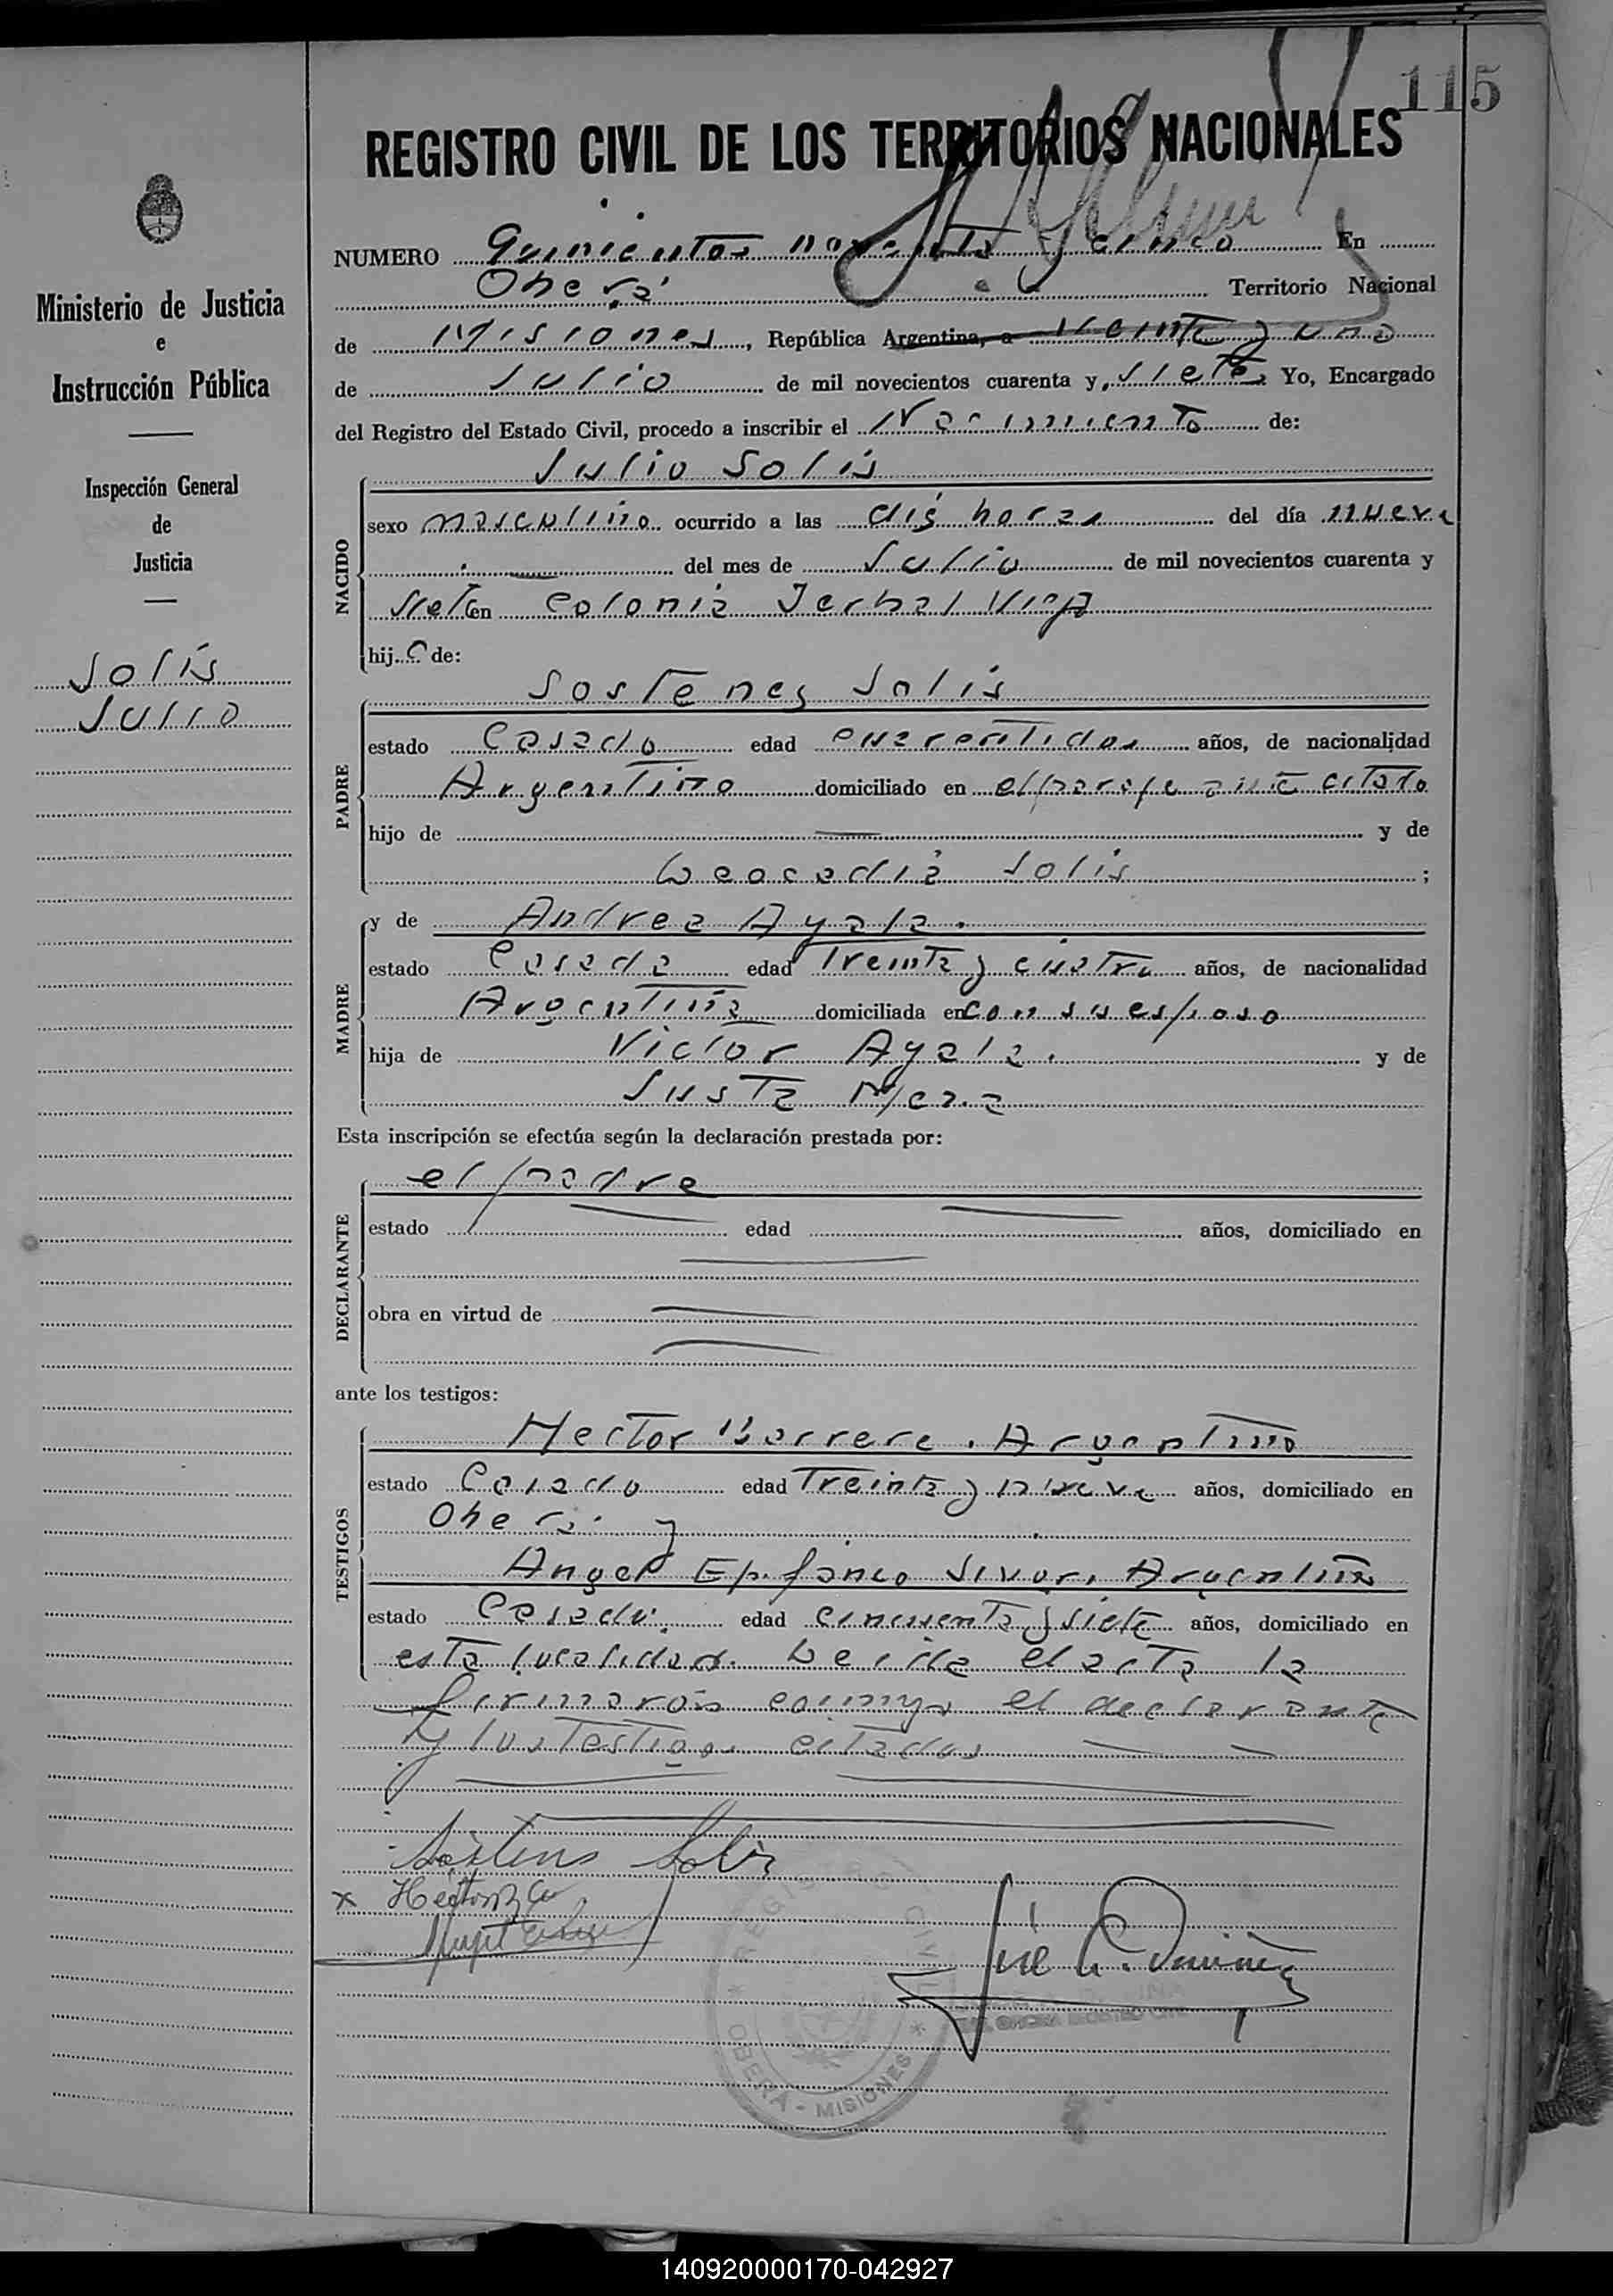 115
REGISTRO CIVIL DE LOS TERRITORIOS NACIONALES
NUMERO Quinientos noventa y cinco En
Oberá Territorio Nacional
de Misiones, República Argentina, a veinte y uno
de Julio de mil novecientos cuarenta y siete, Yo, Encargado
del Registro del Estado Civil, procedo a inscribir el Nacimiento de:
NACIDO
Julio Solis
sexo masculino ocurrido a las diś horas del día nueve
del mes de Julio de mil novecientos cuarenta y
siete en Colonia Yerbal Viejo
hijo de:
PADRE
Sostenes Solis
estado Casado edad cuarentidos años, de nacionalidad
Argentino domiciliado en el paraje ante citado
hijo de y de
Leocadia Solis ;
MADRE
y de Andrea Ayala.
estado Casada edad Treinta y cuatro años, de nacionalidad
Argentina domiciliada en con su esposo
hija de Victor Ayala. y de
Justa
Esta inscripción se efectúa según la declaración prestada por:
DECLARANTE
el padre
estado edad años, domiciliado en
obra en virtud de
ante los testigos:
TESTIGOS
Hector Barrera. Argentino
estado Casado edad Treinta y nueve años, domiciliado en
Oberá y
Angel Epifanio Argentino
estado Casado. edad cincuenta y siete años, domiciliado en
esta localidad. Leida el acta la
firmaron conmigo el declarante
y los Testigos citados
Sostenes Solis
Ministerio de Justicia
e
Instrucción Pública
Inspección General
de
Justicia
Solís
Julio
REGISTRO CIVIL
OBERA - MISIONES
140920000170-042927